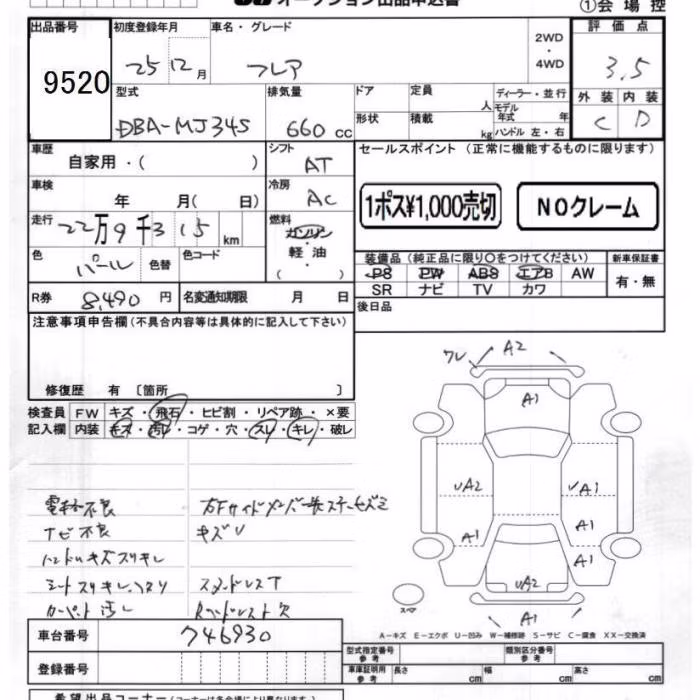 オークション出品申込書
①会場控
出品番号
9520
初度登録年月
25 12月
車名・グレード
フレア
2WD
・
4WD
評価点
3.5
外装 内装
C D
型式
DBA-MJ34S
排気量
660cc
ドア
形状
定員 人
積載 kg
ディーラー・並行
モデル年式 年
ハンドル 左・右
車歴
自家用・( )
シフト
AT
車検
年 月( 日)
冷房
AC
走行
22万9千315km
燃料
ガソリン
・
軽油
( )
色
パール
色替
色コード
R券
8,490円
名変通知期限 月 日
セールスポイント (正常に機能するものに限ります)
1ポス¥1,000売切
NOクレーム
装備品 (純正品に限り○をつけてください)
PS PW ABS エアB AW
SR ナビ TV カワ
新車保証書
有・無
後日品
注意事項申告欄(不具合内容等は具体的に記入して下さい)
修復歴 有 〔箇所 〕
検査員記入欄
FW キズ・飛石・ヒビ割・リペア跡・×要
内装 キズ・汚レ・コゲ・穴・スレ・キレ・破レ
電格不良
ナビ不良
ハンドルキズスリキレ
シートスリキレ、
カーペット汚レ
キズU
ワレ A2
A1
UA2 UA1
A1 A1
A1
UA2
A1
スペア
A-キズ E-エクボ U-凹み W-補修跡 S-サビ C-腐食 XX-交換済
車台番号
746930
登録番号
型式指定番号
参考
類別区分番号
参考
車庫証明用
参考
長さ cm
幅 cm
高さ cm
希望出品コーナー